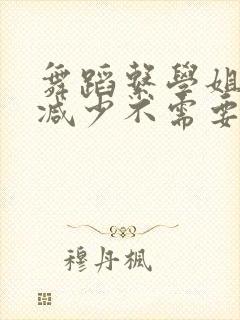 舞蹈繫學姐
減少不需要
穆丹楓